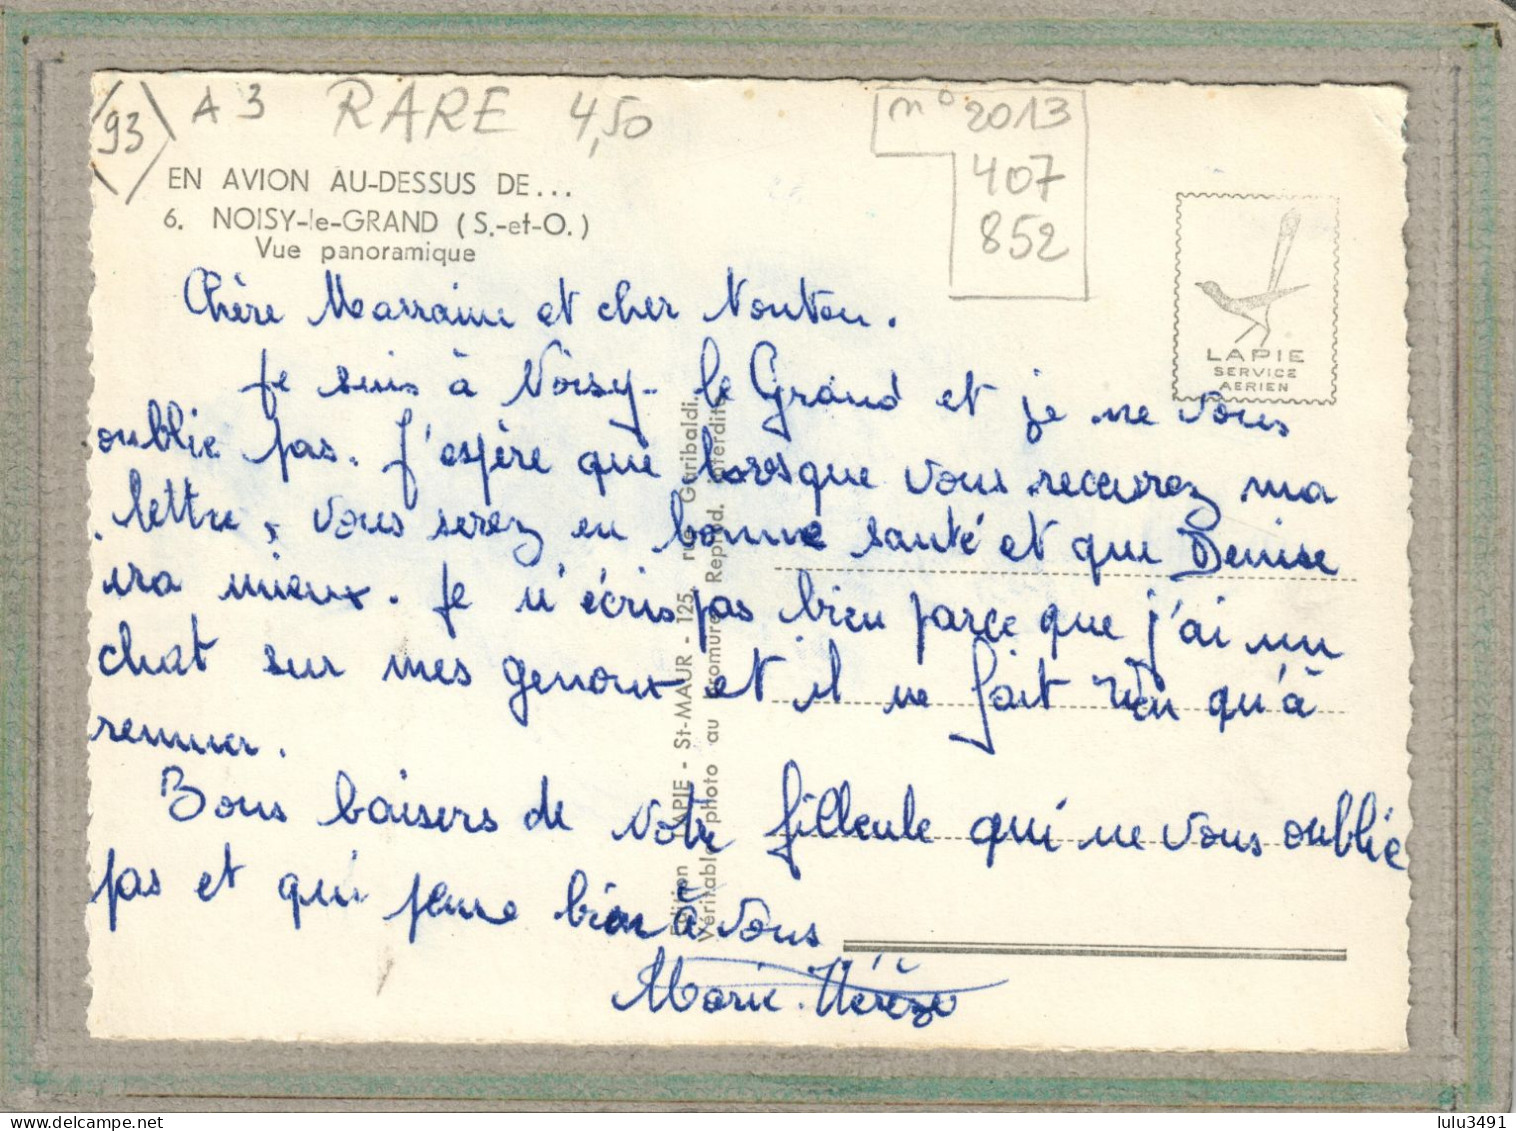 93
A 3
RARE
4,50
n° 2013
407
852
EN AVION AU-DESSUS DE...
6. NOISY-le-GRAND (S.-et-O.)
Vue panoramique
LAPIE
SERVICE
AERIEN
Chère Marraine et cher Tonton.
Je suis à Noisy-le Grand et je ne vous
oublie pas. J'espère que lorsque vous recevrez ma
lettre, vous serez en bonne santé et que Denise
ira mieux. Je n'écris pas bien parce que j'ai un
chat sur mes genoux et il ne fait rien qu'à
remuer.
Bons baisers de votre filleule qui ne vous oublie
pas et qui pense bien à vous
Marie-Thérèse
Edition LAPIE - St-MAUR - 125, rue Garibaldi.
Véritable photo au bromure. Reprod. interdite
delcampe.net
lulu3491